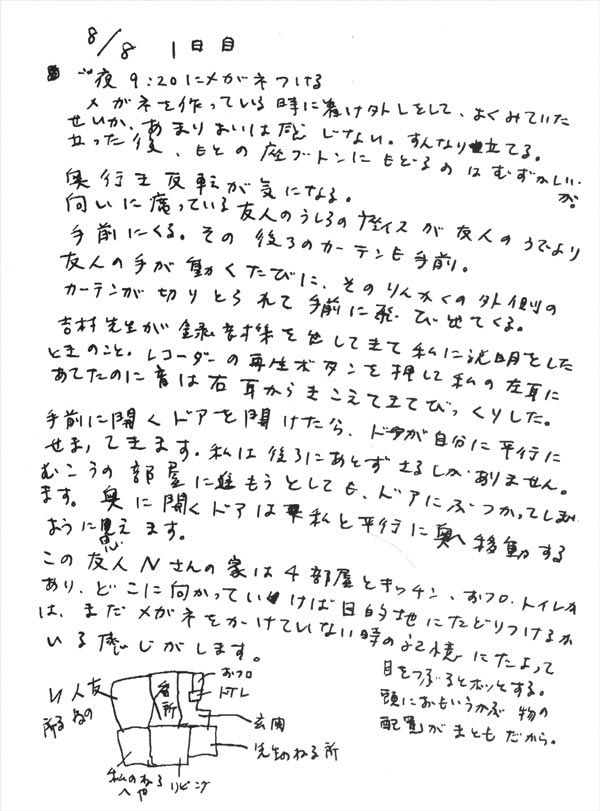 8/8 1日目
夜9:20にメガネつける
メガネを作っている時に着け外しをして、よくみていた
せいか、あまりよいは感じない。すんなり立てる。
立った後、もとの座ブトンにもどるのはむずかしいが。
奥行き反転が気になる。
向いに座っている友人のうしろの座イスが友人のうでより
手前にくる。その後ろのカーテンも手前。
友人の手が動くたびに、そのりんかくの外側の
カーテンが切りとられて手前に飛び出てくる。
吉村先生が録音機を出してきて私に説明をした
ときのこと。レコーダーの再生ボタンを押して私の左耳に
あてたのに音は右耳からきこえてきてびっくりした。
手前に開くドアを開けたら、ドアが自分に平行に
せまってきます。私は後ろにあとずさるしかありません。
むこうの部屋に進もうとしても、ドアにぶつかってしまい
ます。奥に開くドアは私と平行に奥へ移動する
ように思えます。
この友人Nさんの家は4部屋とキッチン、おフロ、トイレが
あり、どこに向かっていけば目的地にたどりつけるか
は、まだメガネをかけていない時の記憶にたよって
いる感じがします。
目をつぶるとホッとする。
頭におもいうかぶ物の
配置がまともだから。
友人N
のねる所
台所
おフロ
トイレ
玄関
先生のねる所
私のねるへや
リビング